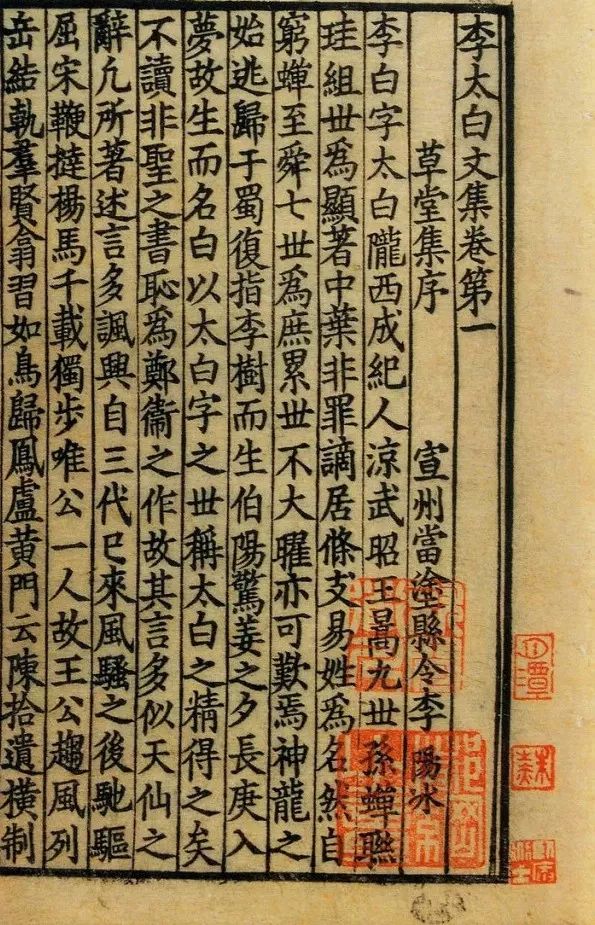 李太白文集卷第一
草堂集序 宣州當塗縣令李陽冰
李白字太白隴西成紀人涼武昭王暠九世孫蟬聮
珪組世爲顯著中葉非罪謫居條支易姓爲名然自
窮蟬至舜七世爲庶累世不大曜亦可歎焉神龍之
始逃歸于蜀復指李樹而生伯陽驚姜之夕長庚入
夢故生而名白以太白字之世稱太白之精得之矣
不讀非聖之書恥爲鄭衞之作故其言多似天仙之
辭凢所著述言多諷興自三代已來風騷之後馳驅
屈宋鞭撻楊馬千載獨步唯公一人故王公趨風列
岳結軌羣賢翕習如鳥歸鳳盧黄門云陳拾遺橫制